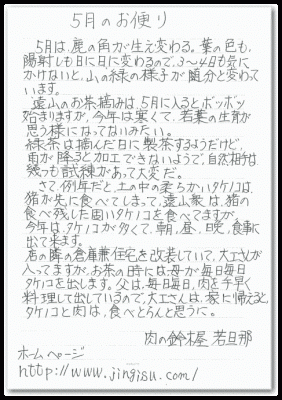 5月のお便り
5月は、鹿の角が生え変わる。葉の色も、
陽射しも日に日に変わるので、3〜4日も気に
かけないと、山の緑の様子が随分と変わって
います。
遠山のお茶摘みは、5月に入るとボツボツ
始まりますが、今年は寒くて、若葉の生育が
思う様になってないみたい。
緑茶は摘んだ日に製茶するようだけど、
雨が降ると加工できないようで、自然相手は
幾つも試練があって大変だ。
さて、例年だと、土の中の柔らかいタケノコは、
猪が先に食べてしまって、遠山家は、猪の
食べ残した固いタケノコを食べてますが、
今年は、タケノコが多くて、朝、昼、晩、食事に
出て来ます。
店の隣の倉庫兼住宅を改装していて、大工さんが
入ってますが、お茶の時には母が毎日毎日
タケノコを出します。父は、毎日毎日、肉を手早く
料理して出しているので、大工さんは、家に帰えると、
タケノコと肉は、食べとらんと思うに。
肉の鈴木屋 若旦那
ホームページ
http://www.jingisu.com/